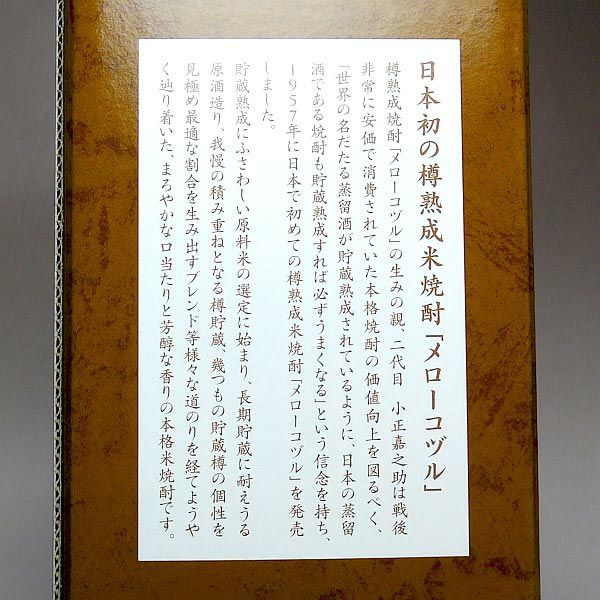 日本初の樽熟成米焼酎「メローコヅル」
樽熟成焼酎「メローコヅル」の生みの親、二代目　小正嘉之助は戦後
非常に安価で消費されていた本格焼酎の価値向上を図るべく、
「世界の名だたる蒸留酒が貯蔵熟成されているように、日本の蒸留
酒である焼酎も貯蔵熟成すれば必ずうまくなる」という信念を持ち、
1957年に日本で初めての樽熟成米焼酎「メローコヅル」を発売
しました。
貯蔵熟成にふさわしい原料米の選定に始まり、長期貯蔵に耐えうる
原酒造り、我慢の積み重ねとなる樽貯蔵、幾つもの貯蔵樽の個性を
見極め最適な割合を生み出すブレンド等様々な道のりを経てようや
く辿り着いた、まろやかな口当たりと芳醇な香りの本格米焼酎です。